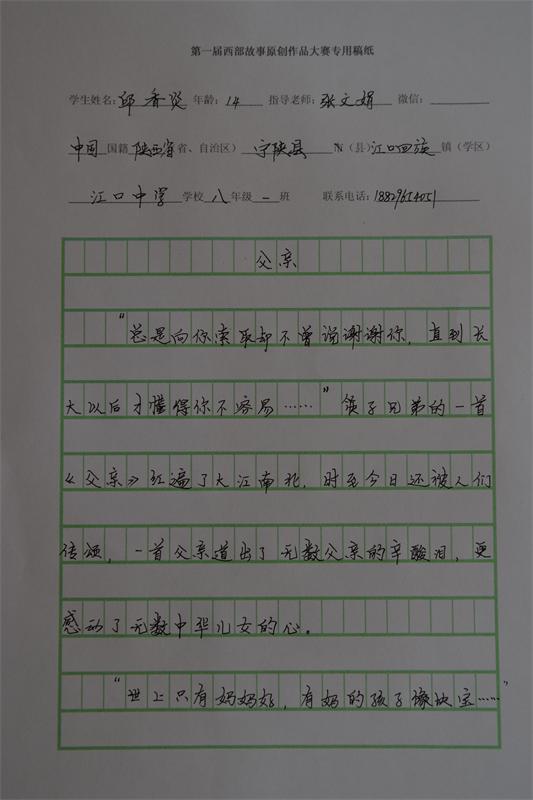 第一届西部故事原创作品大赛专用稿纸
学生姓名:邱香炎 年龄:14 指导老师:张文娟 微信:
中国 国籍 陕西省 省、自治区) 宁陕县 市(县) 江口回族 镇(学区)
江口中学 学校 八 年级 一 班 联系电话:18829654051
父亲
“总是向你索取却不曾说谢谢你,直到长
大以后才懂得你不容易……”筷子兄弟的一首
《父亲》红遍了大江南北,时至今日还被人们
传颂,一首父亲道出了无数父亲的辛酸泪,更
感动了无数中华儿女的心。
“世上只有妈妈好,有妈的孩子像块宝……”